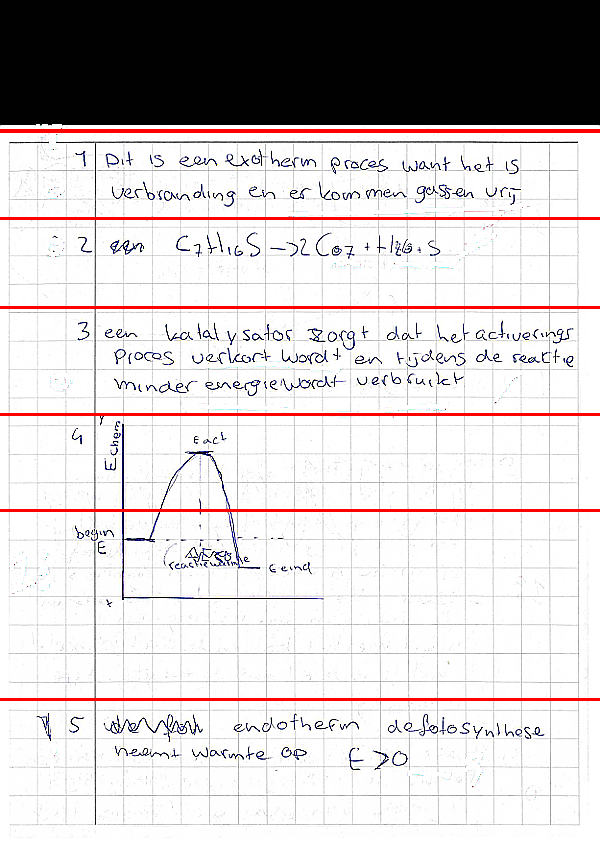 1 Dit is een exotherm proces want het is
verbranding en er kommen gassen vrij
2 C7H16S —>2 CO7 + H26+S
3 een katalysator zorgt dat het activerings
proces verkort wordt en tijdens de reactie
minder energie wordt verbruikt
4
y
E chem
E act
begin
E
reactiewarmte
E eind
x
5 endotherm de fotosynthese
neemt warmte op E >0